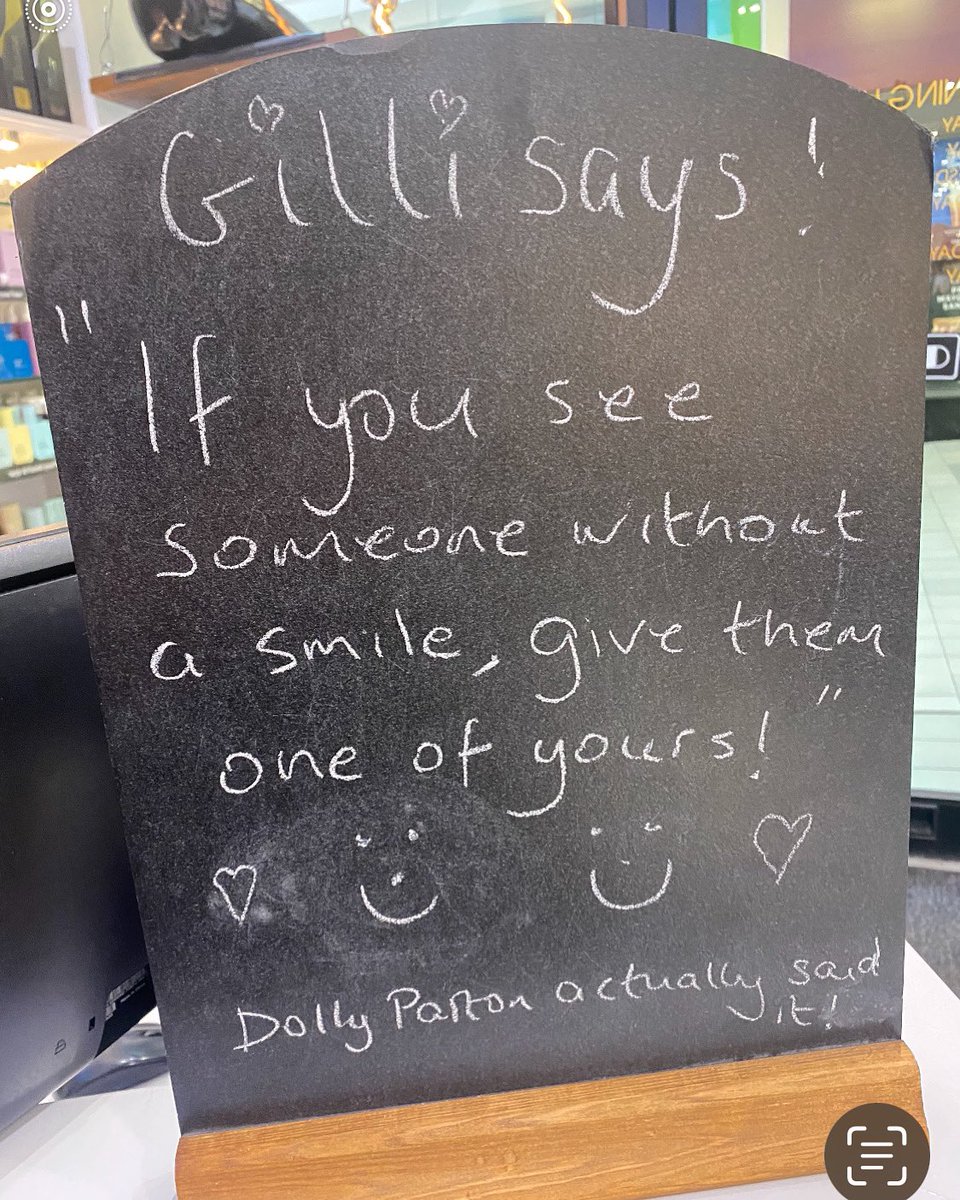 Gilli says!
"If you see
someone without
a smile, give them
one of yours!"
Dolly Parton actually said
it!